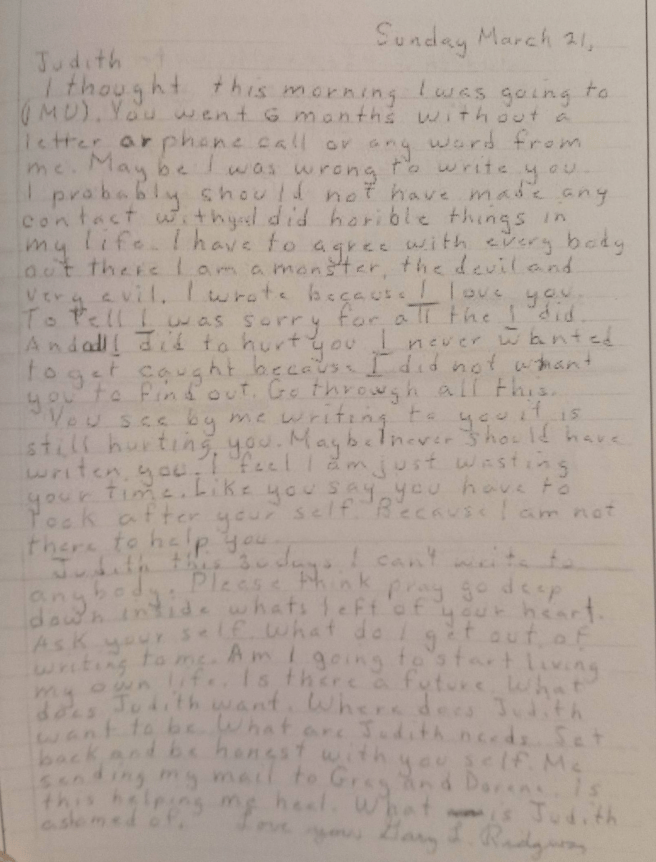 Sunday March 21,
Judith
I thought this morning I was going to
(IMU). You went 6 months without a
letter or phone call or any word from
me. Maybe I was wrong to write you.
I probably should not have made any
contact withyoul did horible things in
my life. I have to agree with every body
out there I am a monster, the devil and
very evil. I wrote because I love you.
To Tell I was sorry for all the I did.
And all I did to hurt you I never wanted
to get caught because I did not want
you to find out. Go through all this.
You see by me writing to you it is
still hurting you. Maybe I never should have
writen you. I feel I am just wasting
your time. Like you say you have to
look after your self. Because I am not
there to help you.
Judith this 30 days I can't write to
anybody. Please think pray go deep
down inside whats left of your heart.
Ask your self. What do I get out of
writing to me. Am I going to start living
my own life. Is there a future. What
does Judith want. Where does Judith
want to be. What are Judith needs. Set
back and be honest with you self. Me
sending my mail to Greg and Dorene. is
this helping me heal. What is Judith
ashomed of. Love you, Gary L. Ridgway